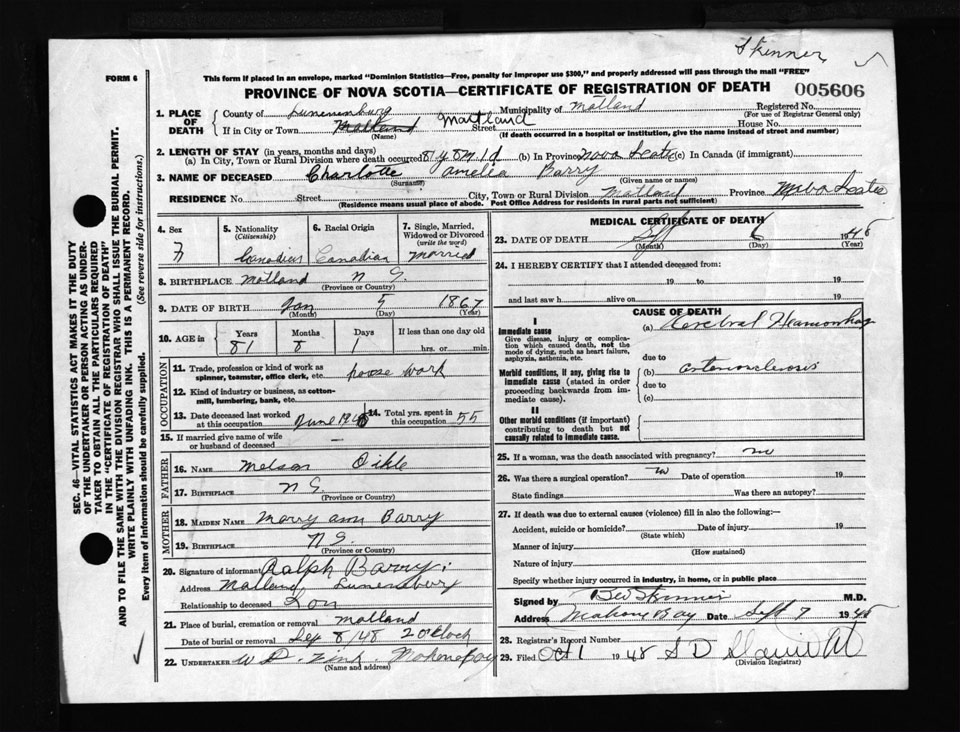 Skinner
FORM 6
This form if placed in an envelope, marked "Dominion Statistics—Free, penalty for improper use $300," and properly addressed will pass through the mail "FREE"
PROVINCE OF NOVA SCOTIA—CERTIFICATE OF REGISTRATION OF DEATH 005606
1. PLACE OF DEATH
County of Lunenburg Municipality of Matland Registered No.
(For use of Registrar General only)
If in City or Town Matland Martland Street House No.
(Name) (If death occurred in a hospital or institution, give the name instead of street and number)
2. LENGTH OF STAY (in years, months and days)
(a) In City, Town or Rural Division where death occurred 81 y 8 m 1 d (b) In Province Nova Scotia (c) In Canada (if immigrant)
3. NAME OF DECEASED Charlotte Amelia Barry
(Surname) (Given name or names)
RESIDENCE No. Street City, Town or Rural Division Matland Province Nova Scotia
(Residence means usual place of abode. Post Office Address for residents in rural parts not sufficient)
4. Sex 5. Nationality (Citizenship) 6. Racial Origin 7. Single, Married, Widowed or Divorced (write the word)
F Canadian Canadian Married
8. BIRTHPLACE Matland N S.
(Province or Country)
9. DATE OF BIRTH Jan 5 1867
(Month) (Day) (Year)
10. AGE in Years Months Days If less than one day old
81 8 1 hrs. or min.
OCCUPATION
11. Trade, profession or kind of work as spinner, teamster, office clerk, etc. house work
12. Kind of industry or business, as cotton-mill, lumbering, bank, etc.
13. Date deceased last worked at this occupation June 194 14. Total yrs. spent in this occupation 55
15. If married give name of wife or husband of deceased —
FATHER
16. NAME Melson Oikle
17. BIRTHPLACE N S.
(Province or Country)
MOTHER
18. MAIDEN NAME Marry ann Barry
19. BIRTHPLACE N S.
(Province or Country)
20. Signature of informant Ralph Barry
Address Matland Lunenburg
Relationship to deceased Son
21. Place of burial, cremation or removal Matland
Date of burial or removal Sep 8/48 2 o'clock
22. UNDERTAKER W D. Zink. Mahone Bay
(Name and address)
MEDICAL CERTIFICATE OF DEATH
23. DATE OF DEATH Sept 6 1948
(Month) (Day) (Year)
24. I HEREBY CERTIFY that I attended deceased from:
19 to 19
and last saw h alive on 19
CAUSE OF DEATH
I
Immediate cause
Give disease, injury or complication which caused death, not the mode of dying, such as heart failure, asphyxia, asthenia, etc.
(a) Cerebral Heamorrhag
due to
Morbid conditions, if any, giving rise to immediate cause (stated in order proceeding backwards from immediate cause).
(b)
due to
(c)
II
Other morbid conditions (if important) contributing to death but not causally related to immediate cause.
25. If a woman, was the death associated with pregnancy? no
26. Was there a surgical operation? no Date of operation 19
State findings Was there an autopsy?
27. If death was due to external causes (violence) fill in also the following:—
Accident, suicide or homicide? Date of injury 19
(State which)
Manner of injury
(How sustained)
Nature of injury
Specify whether injury occurred in industry, in home, or in public place
Signed by Skinner M.D.
Address Mahone Bay Date Sept 7 1948
28. Registrar's Record Number
29. Filed Oct 1 1948 S D
(Division Registrar)
SEC. 46—VITAL STATISTICS ACT MAKES IT THE DUTY
OF THE UNDERTAKER OR PERSON ACTING AS UNDER-
TAKER TO OBTAIN ALL THE PARTICULARS REQUIRED
IN THE "CERTIFICATE OF REGISTRATION OF DEATH"
AND TO FILE THE SAME WITH THE DIVISION REGISTRAR WHO SHALL ISSUE THE BURIAL PERMIT.
WRITE PLAINLY WITH UNFADING INK. THIS IS A PERMANENT RECORD.
Every item of information should be carefully supplied. (See reverse side for instructions.)